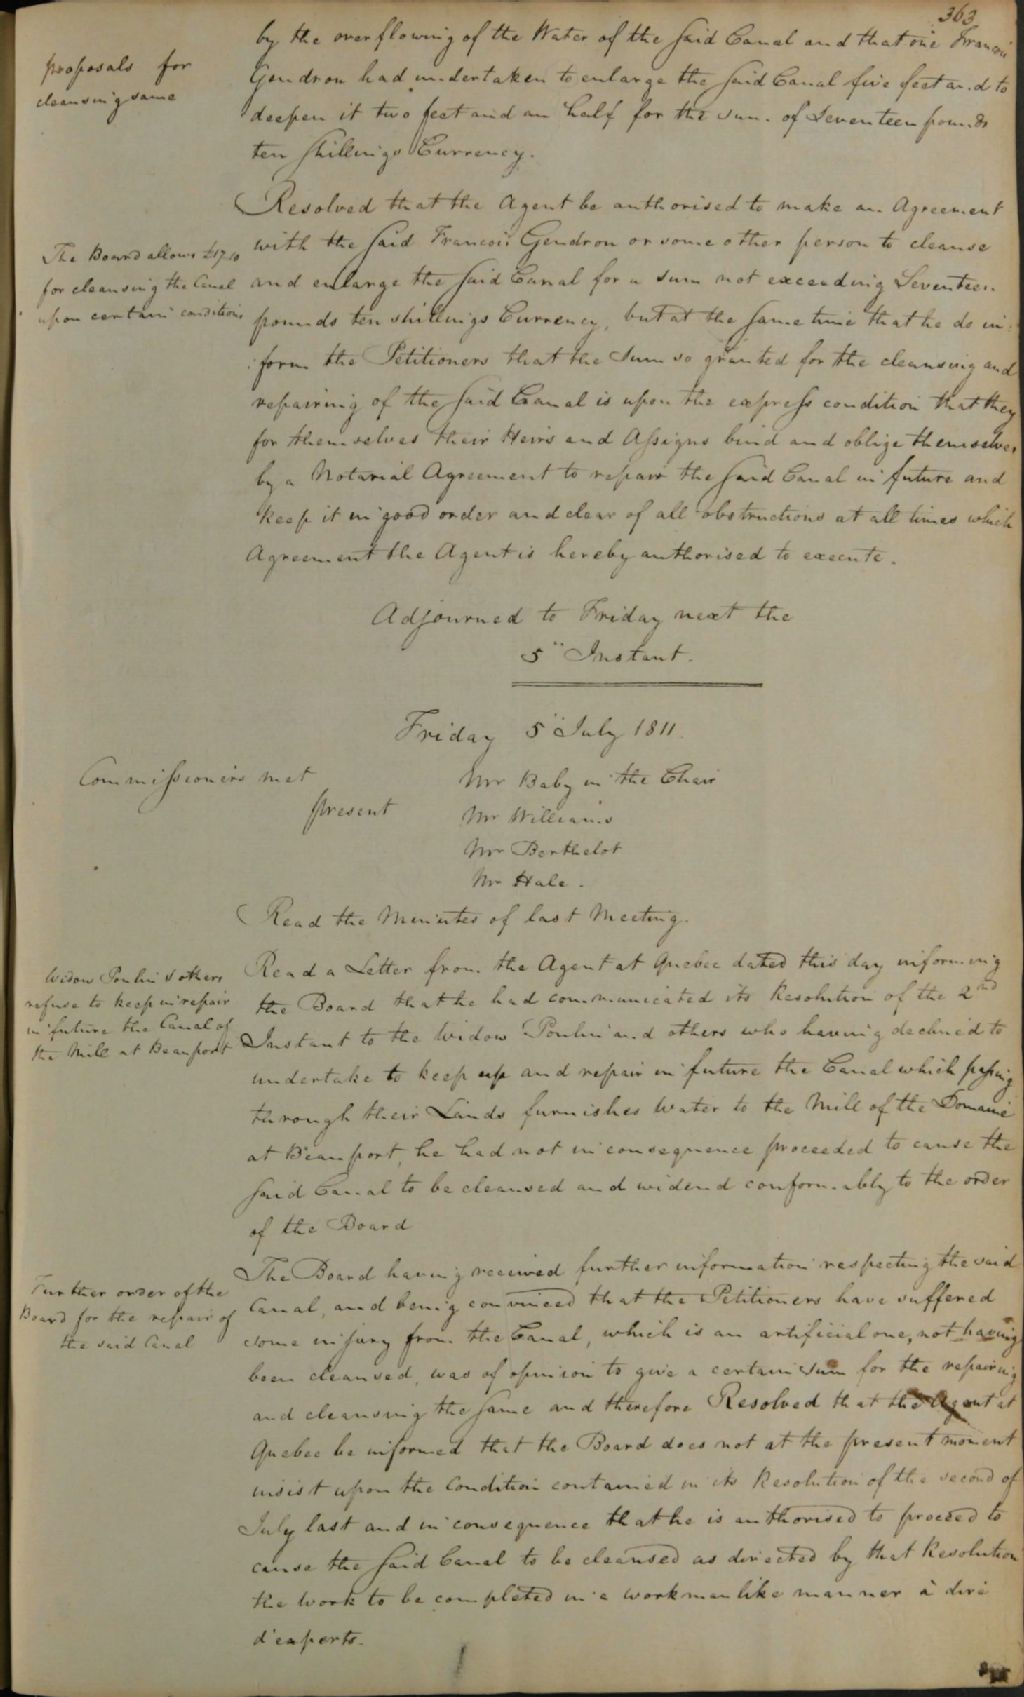 363
by the overflowing of the Water of the Said Canal and that one Francois
proposals for
cleansing same
Gendron had undertaken to enlarge the Said Canal five feet and to
deepen it two feet and an half for the sum of Seventeen pounds
ten Shillings Currency.
Resolved that the Agent be authorised to make an Agreement
The Board allows £17.10
for cleansing the Canal
upon certain conditions
with the Said Francois Gendron or some other person to cleanse
and enlarge the Said Canal for a sum not exceeding Seventeen
pounds ten shillings Currency, but at the Same time that he do in:
:form the Petitioners that the Sum so granted for the cleansing and
repairing of the Said Canal is upon the express condition that they
for themselves their Heirs and Assigns bind and oblige themselves
by a Notarial Agreement to repair the Said Canal in future and
keep it in good order and clear of all obstructions at all times which
Agreement the Agent is hereby authorised to execute.
Adjourned to Friday next the
5" Instant.
Friday 5" July 1811.
Commissioners met
present
Mr Baby in the Chair
Mr Williams
Mr Berthelot
Mr Hale.
Read the Minutes of last Meeting.
Widow Poulin & others
refuse to keep in repair
in future the Canal of
the Mill at Beauport
Read a Letter from the Agent at Quebec dated this day informing
the Board that he had communicated its Resolution of the 2nd
Instant to the Widow Poulin and others who having declined to
undertake to keep up and repair in future the Canal which passing
through their Lands furnishes Water to the Mill of the Domaine
at Beauport, he had not in consequence proceeded to cause the
Said Canal to be cleansed and widend conformably to the order
of the Board
Further order of the
Board for the repair of
the said Canal
The Board having received further information respecting the said
Canal, and being convinced that the Petitioners have suffered
some injury from the Canal, which is an artificial one, not having
been cleansed, was of opinion to give a certain sum for the repairing
and cleansing the Same and therefore Resolved that the Agent at
Quebec be informed that the Board does not at the present moment
insist upon the Condition contained in its Resolution of the second of
July last and in consequence that he is authorised to proceed to
cause the Said Canal to be cleansed as directed by that Resolution
the work to be completed in a workmanlike manner à dire
d'experts.